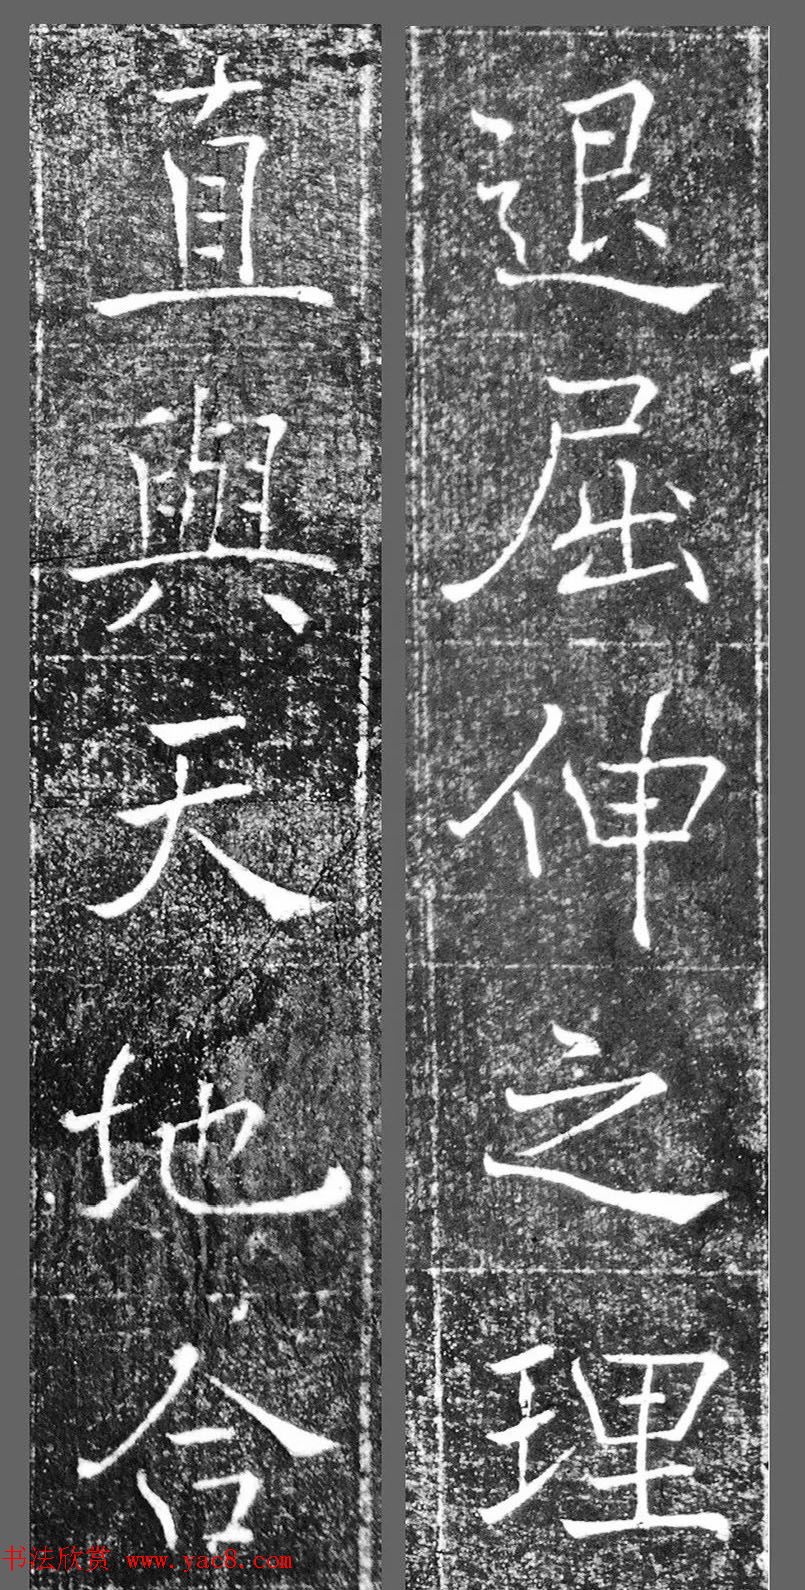 退屈伸之理
直與天地合
书法欣赏 www.yac8.com